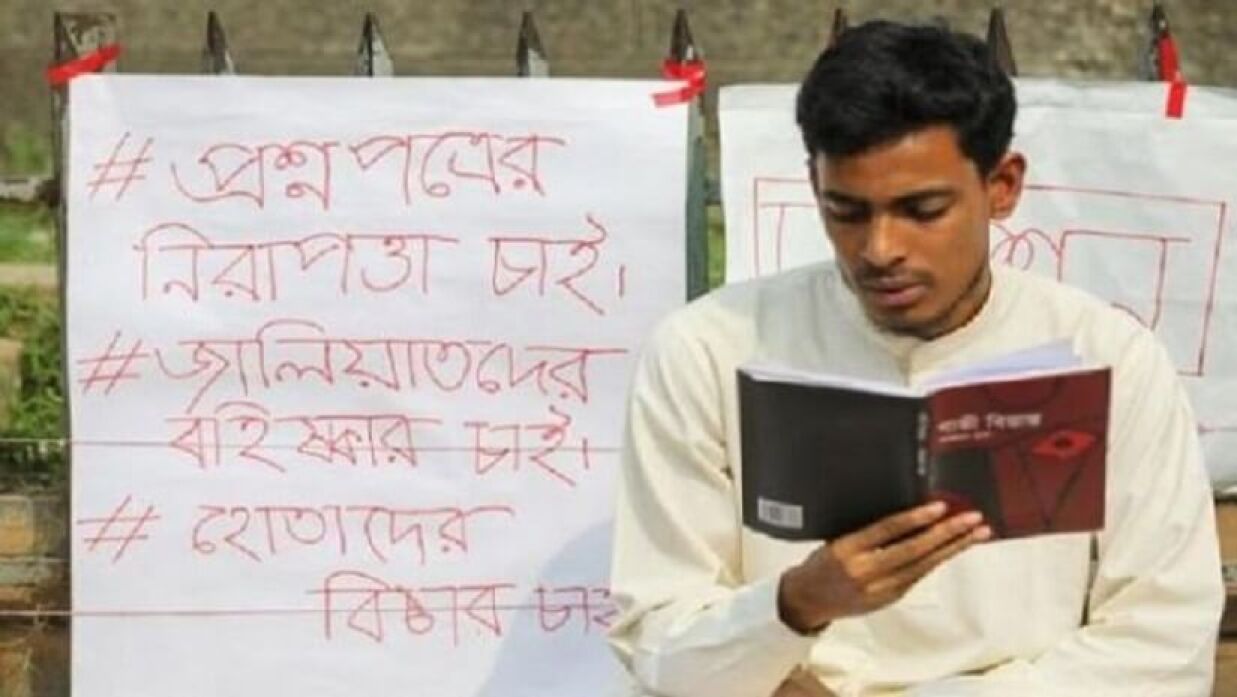 # প্রশ্ন পত্রের
নিরাপত্তা চাই।
# জালিয়াতদের
বহিষ্কার চাই।
# হোতাদের
বিচার চাই